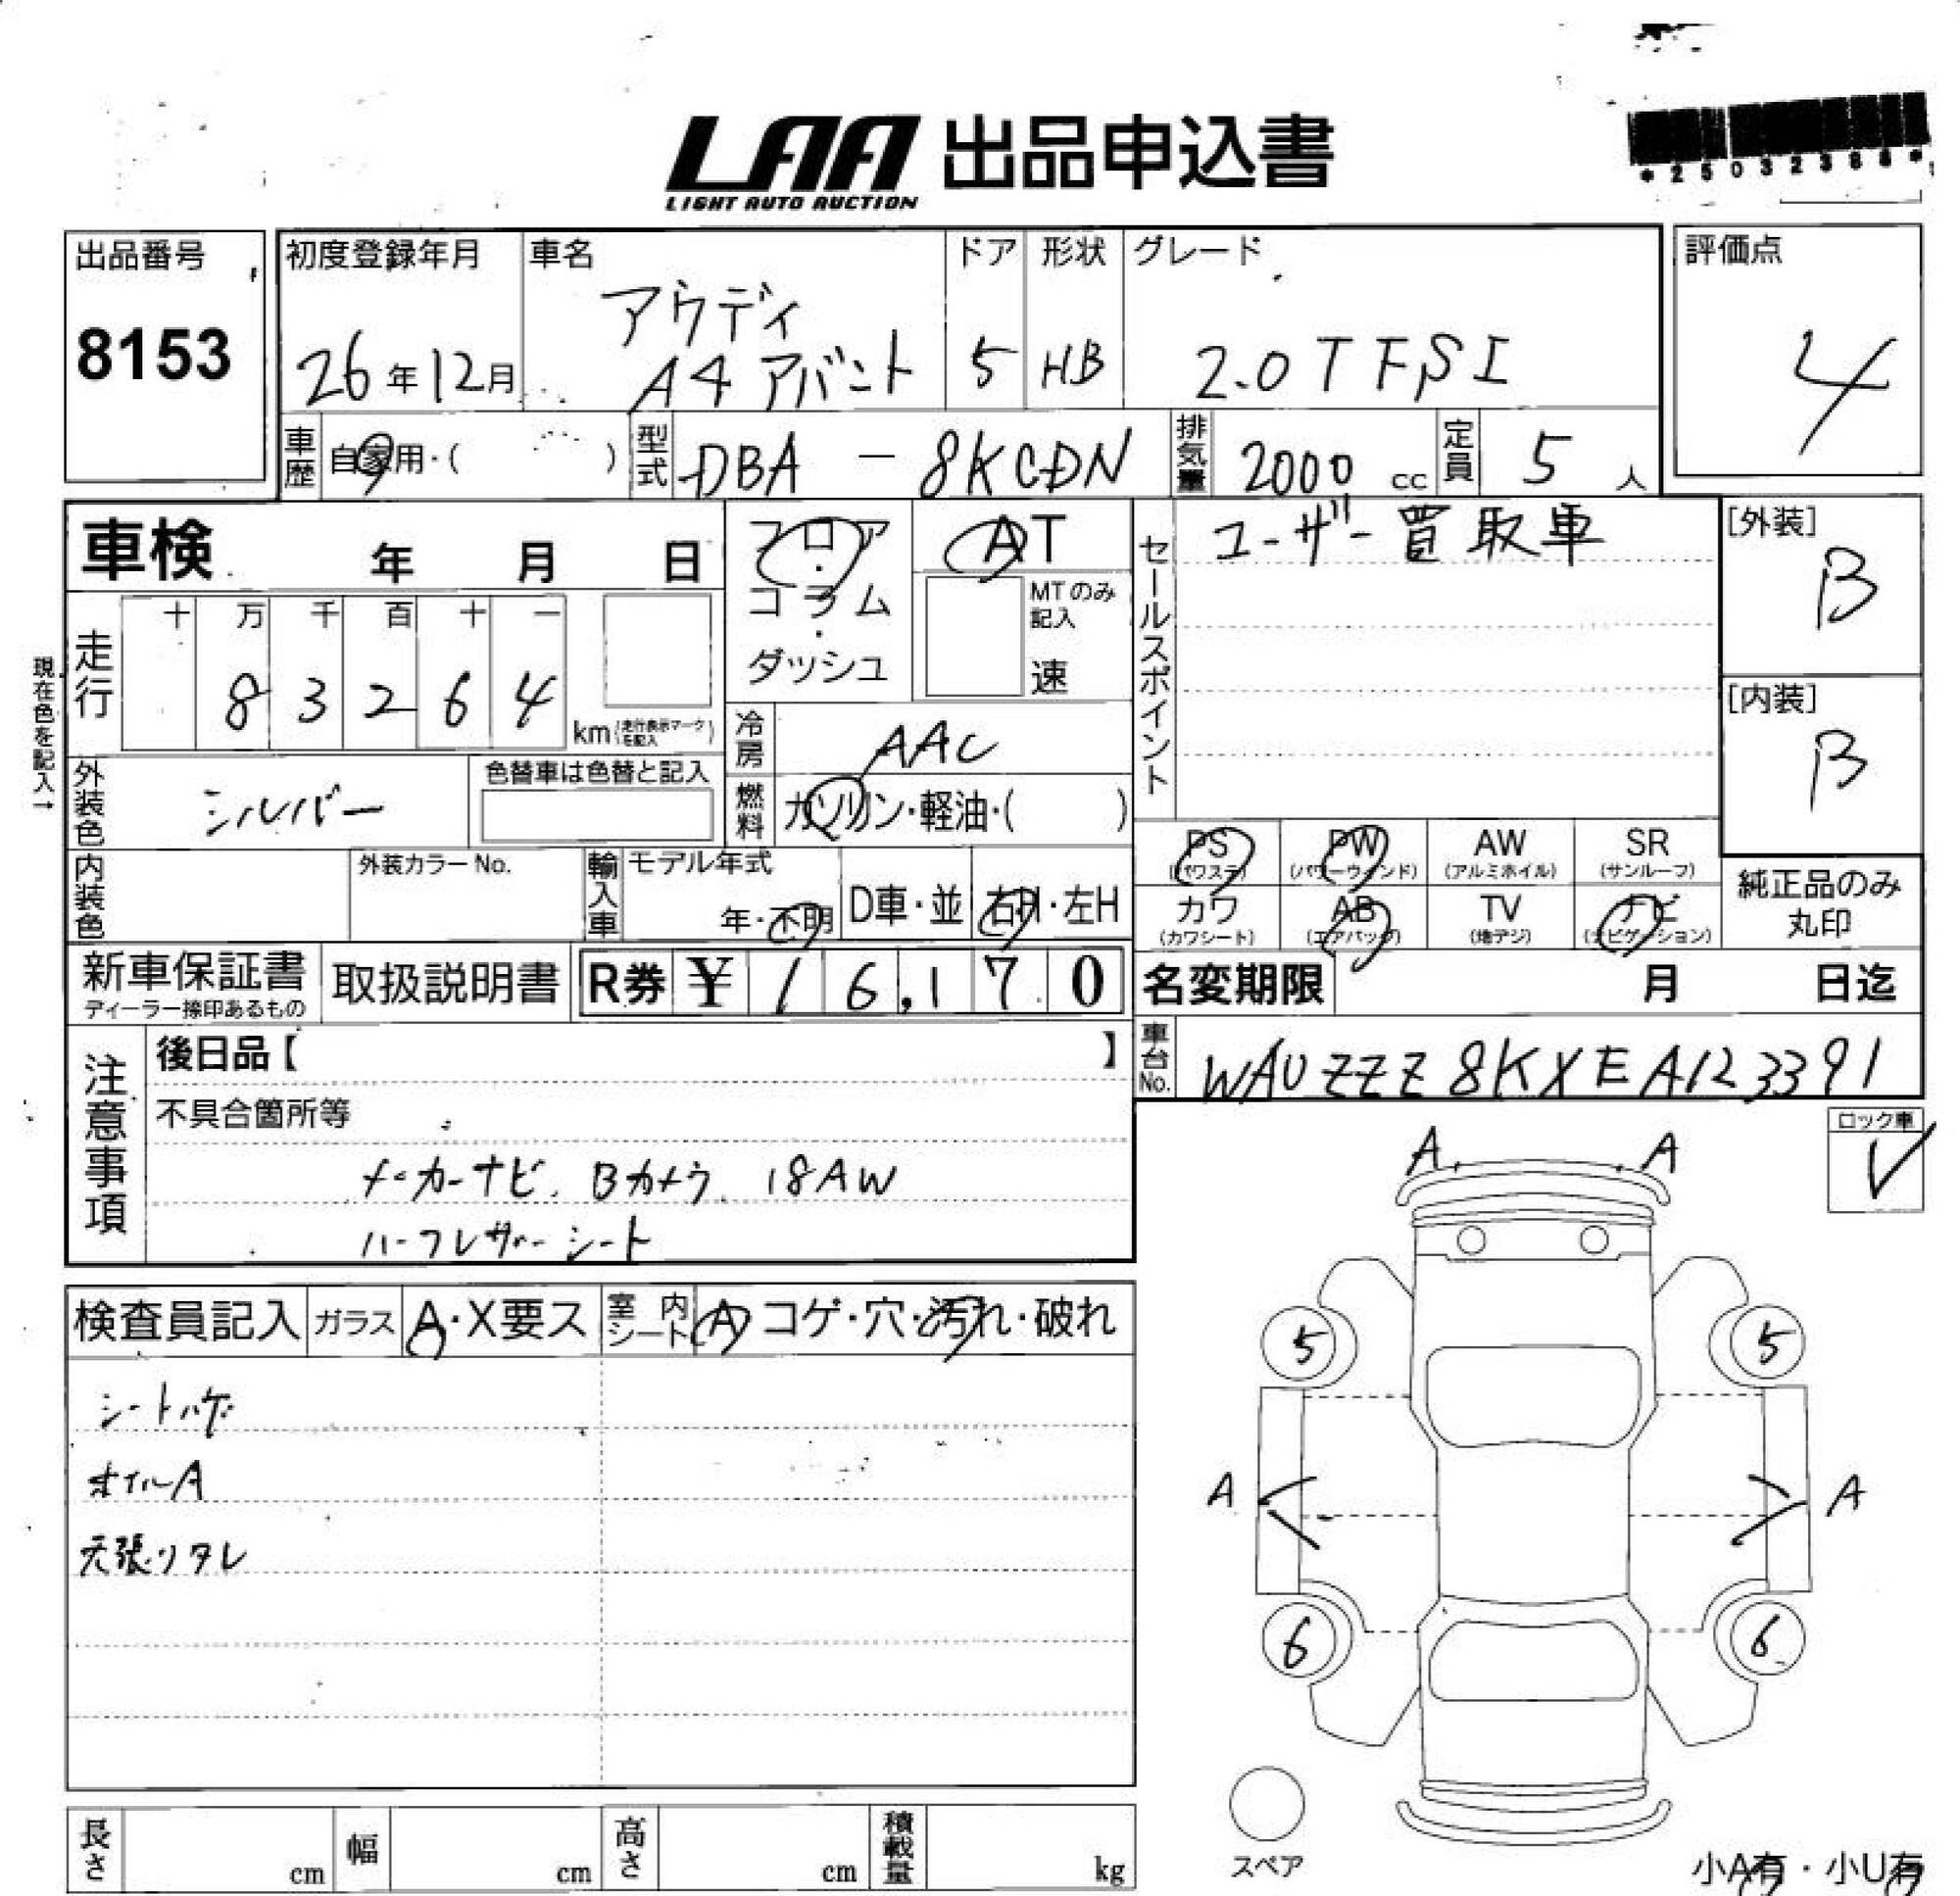 LAA 出品申込書
LIGHT AUTO AUCTION
*25032388*
出品番号
8153
初度登録年月
26年12月
車名
アウディ
A4 アバント
ドア
5
形状
HB
グレード
2.0TFSI
評価点
4
車歴
自家用・( )
型式
DBA - 8KCDN
排気量
2000 cc
定員
5 人
車検 年 月 日
フロア・コラム・ダッシュ
AT
MTのみ記入
速
セールスポイント
ユーザー買取車
[外装]
B
[内装]
B
現在色を記入→
走行
十 万 千 百 十 一
8 3 2 6 4
km (走行表示マークを記入)
冷房
AAC
外装色
シルバー
色替車は色替と記入
燃料
ガソリン・軽油・( )
PS (パワステ)
PW (パワーウィンド)
AW (アルミホイル)
SR (サンルーフ)
カワ (カワシート)
AB (エアバッグ)
TV (地デジ)
ナビ (ナビゲーション)
純正品のみ
丸印
内装色
外装カラーNo.
輸入車
モデル年式
年・不明
D車・並
右H・左H
新車保証書
ディーラー捺印あるもの
取扱説明書
R券 ¥ 16,170
名変期限 月 日迄
車台No.
WAUZZZ8KXEA123391
注意事項
後日品【 】
不具合箇所等
メーカーナビ、Bカメラ、18AW
ハーフレザーシート
ロック車
✓
検査員記入
ガラス
A・X要ス
室内シート
A コゲ・穴・汚れ・破れ
シートハゲ
ホイルA
天張りタレ
A A
5 5
A A
6 6
スペア
小A有・小U有
長さ cm
幅 cm
高さ cm
積載量 kg